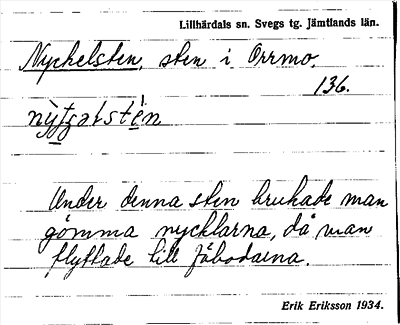 Lillhärdals sn. Svegs tg. Jämtlands län.
Nyckelsten, sten i Orrmo.
136.
Under denna sten brukade man
gömma nycklarna, då man
flyttade till fäbodarna.
Erik Eriksson 1934.